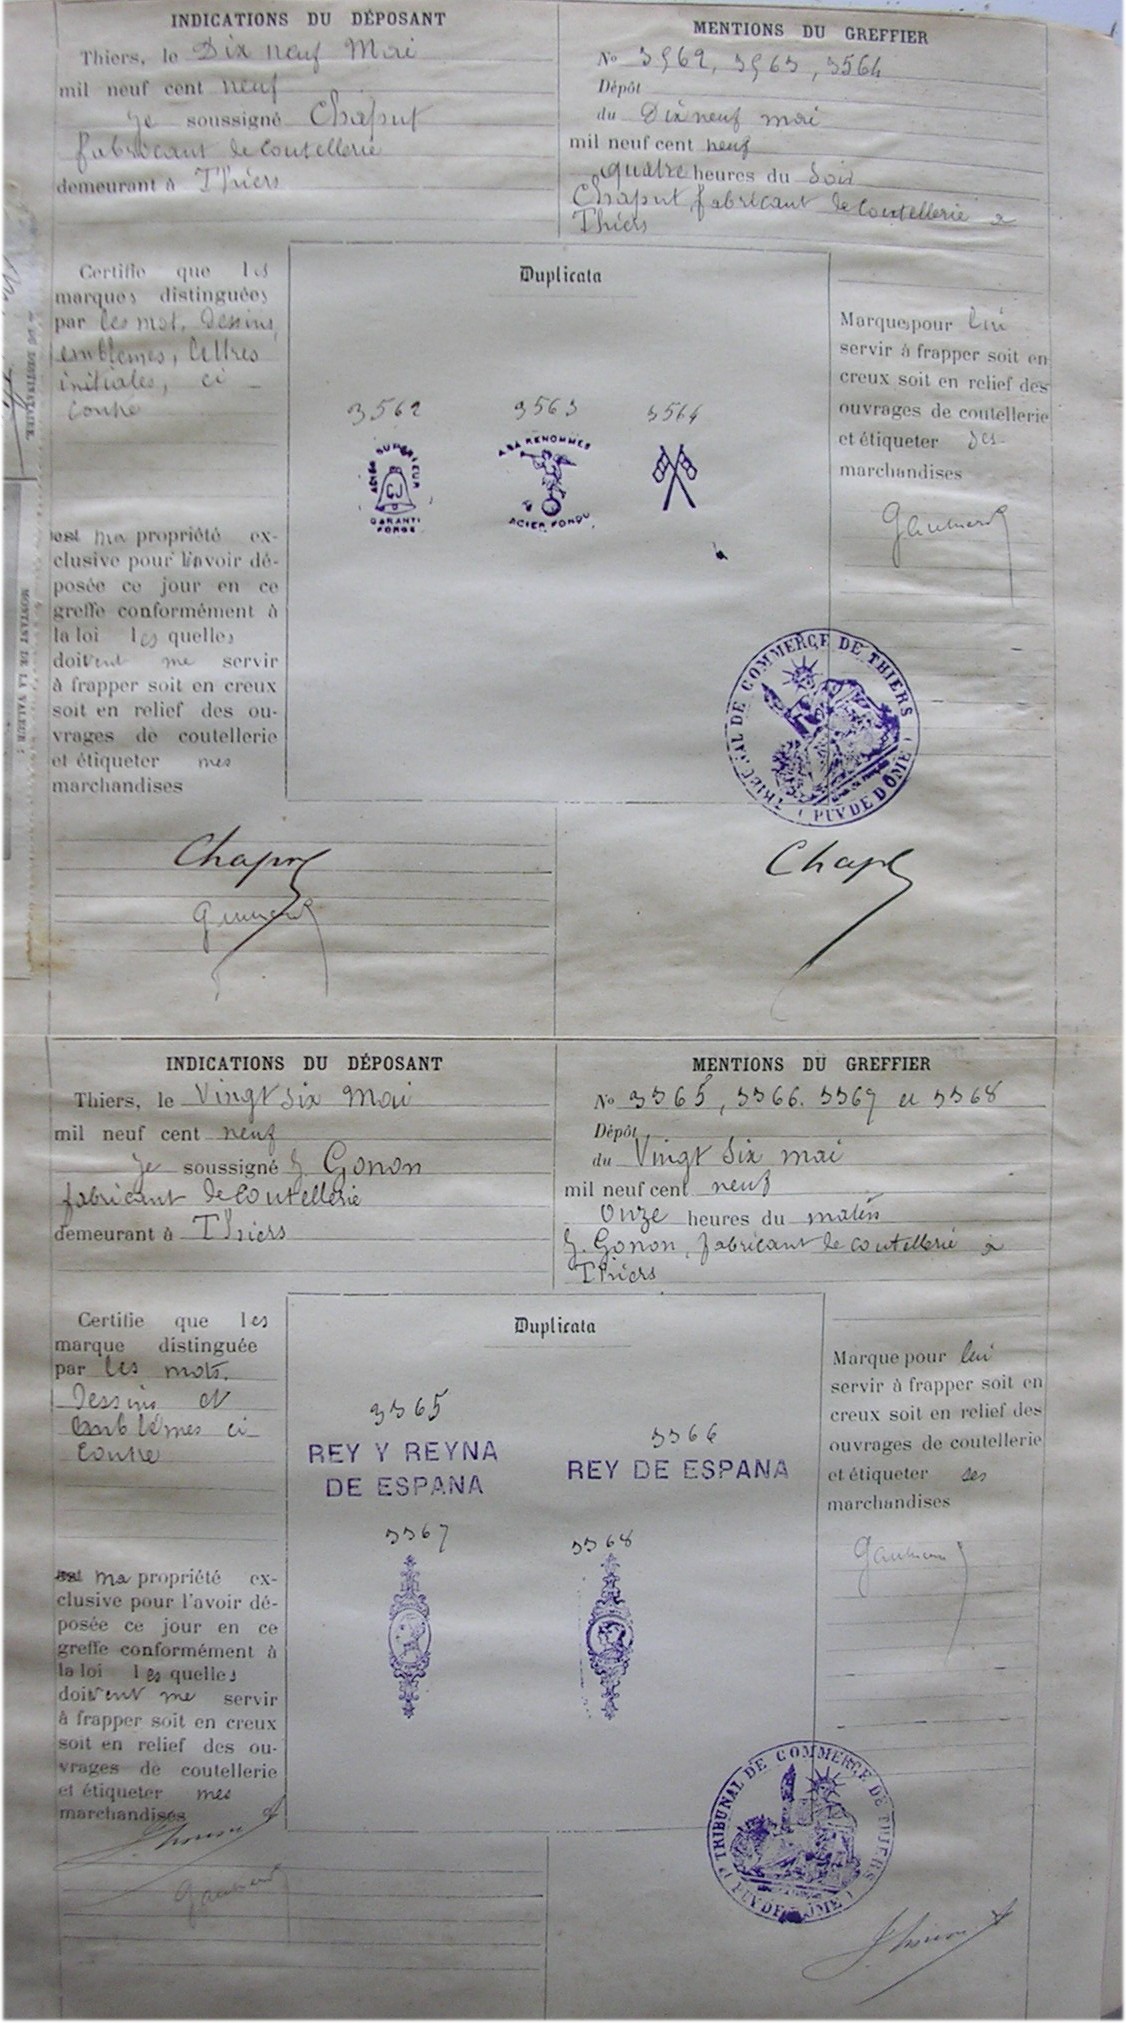 INDICATIONS DU DÉPOSANT
Thiers, le Dix neuf Mai
mil neuf cent neuf
je soussigné Chaput
fabricant de Coutellerie
demeurant à Thiers
MENTIONS DU GREFFIER
No 3562, 3563, 3564
Dépôt
du Dix neuf mai
mil neuf cent neuf
quatre heures du Soir
Chaput fabricant de Coutellerie à
Thiers
Certifie que les
marques distinguées
par les mot, dessins,
emblemes, lettres
initiales, ci
contre
est ma propriété ex-
clusive pour l'avoir dé-
posée ce jour en ce
greffe conformément à
la loi lesquelles
doivent me servir
à frapper soit en creux
soit en relief des ou-
vrages de coutellerie
et étiqueter mes
marchandises
Duplicata
3562 3563 3564
ACIER SUPERIEUR
CJ
GARANTI
FORGE
A SA RENOMMEE
ACIER FONDU
Marques pour lui
servir à frapper soit en
creux soit en relief des
ouvrages de coutellerie
et étiqueter ses
marchandises
TRIBUNAL DE COMMERCE DE THIERS
(PUY DE DOME)
Chaput
Chaput
DU DESTINATAIRE.
MONTANT DE LA VALEUR :
INDICATIONS DU DÉPOSANT
Thiers, le Vingt six Mai
mil neuf cent neuf
je soussigné Gonon
fabricant de Coutellerie
demeurant à Thiers
MENTIONS DU GREFFIER
No 3565, 3566. 3567 et 3568
Dépôt
du Vingt Six mai
mil neuf cent neuf
Onze heures du matin
Gonon, fabricant de coutellerie à
Thiers
Certifie que les
marque distinguée
par les mots,
dessins et
emblèmes ci
contre
est ma propriété ex-
clusive pour l'avoir dé-
posée ce jour en ce
greffe conformément à
la loi lesquelles
doivent me servir
à frapper soit en creux
soit en relief des ou-
vrages de coutellerie
et étiqueter mes
marchandises
Duplicata
3565
REY Y REYNA
DE ESPANA
3566
REY DE ESPANA
3567 3568
Marque pour lui
servir à frapper soit en
creux soit en relief des
ouvrages de coutellerie
et étiqueter ses
marchandises
TRIBUNAL DE COMMERCE DE THIERS
(PUY DE DOME)